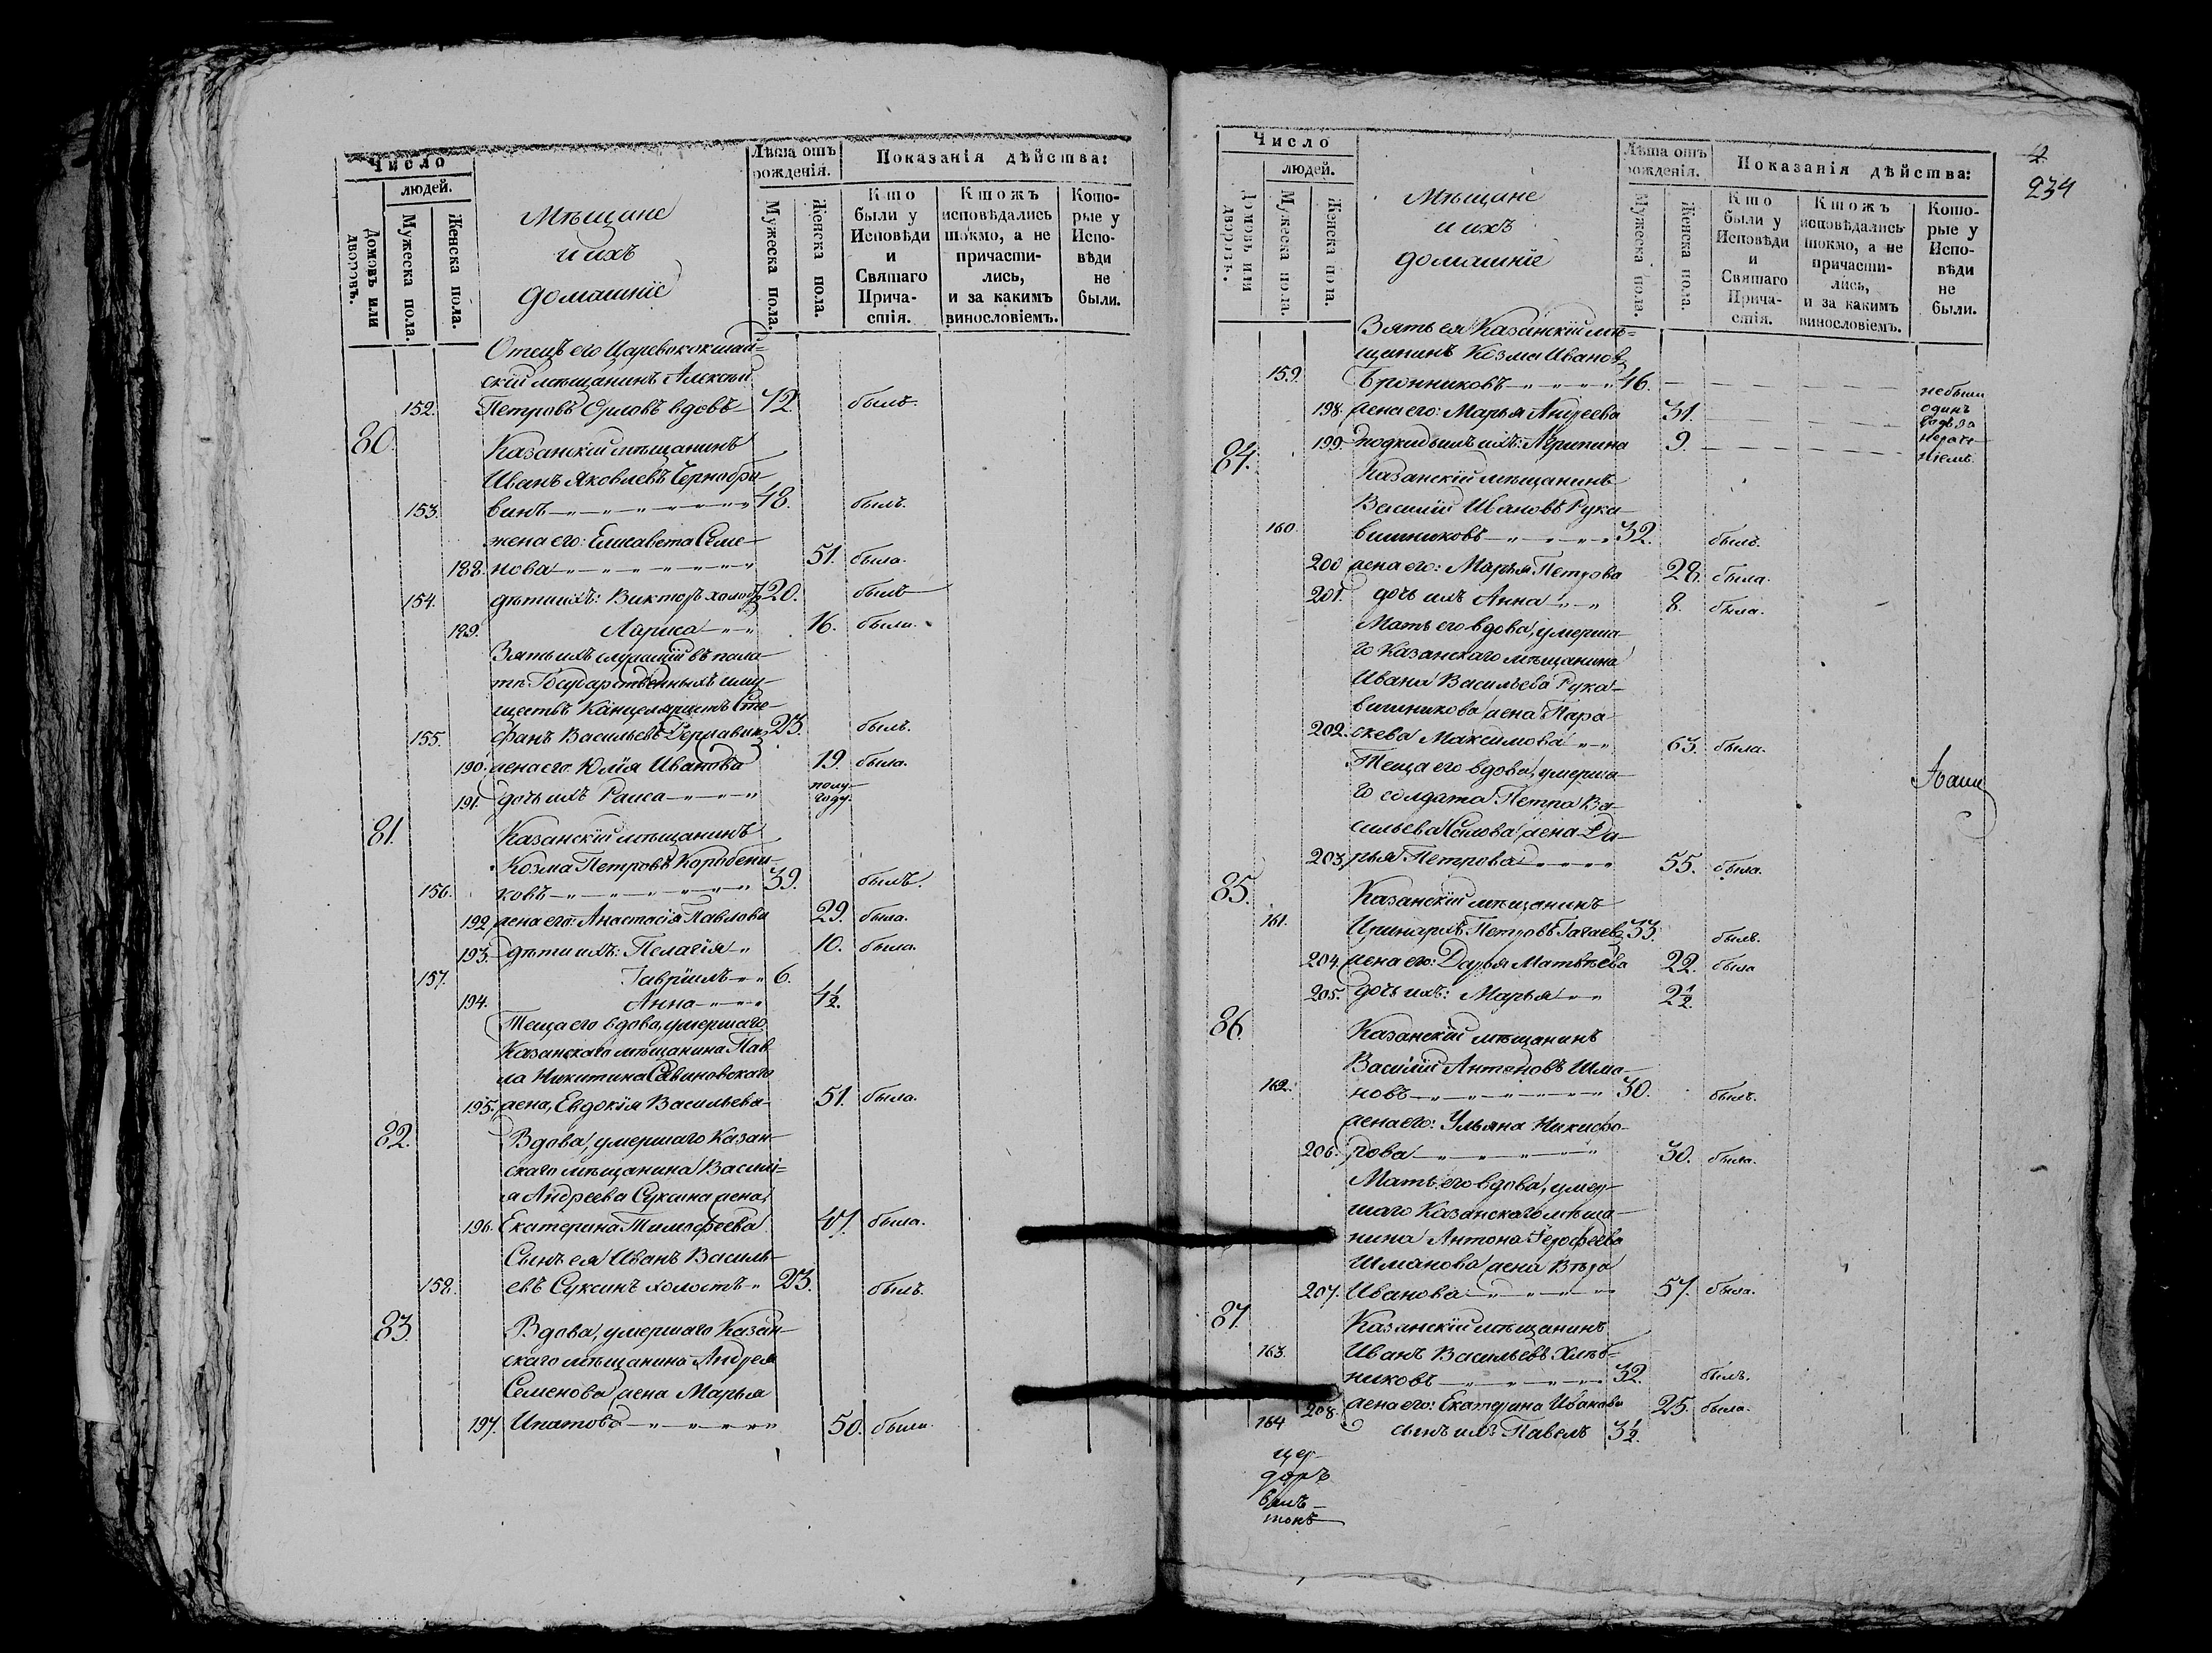 Число
людей.
Домовъ или дворовъ.
Мужеска пола.
Женска пола.
Мѣщане
и ихъ
домашніе
Лѣта отъ рожденія.
Мужеска пола.
Женска пола.
Показанія дѣйства:
Кто были у Исповѣди и Святаго Прича-стія.
Ктожъ исповѣдались токмо, а не причасти-лись, и за какимъ винословіемъ.
Кото-рые у Испо-вѣди не были.
Отецъ его Царевококшай-
скій мѣщанинъ Алексѣй
152. Петровъ Орловъ вдовъ 72. былъ.
80. Казанскій мѣщанинъ
Иванъ Яковлевъ Чернобро-
153. винъ 48. былъ.
жена его: Елисавета Семе-
188. нова 51. была.
154. дѣти ихъ: Викторъ холостъ 20. былъ
189. Лариса 16. была.
Зять ихъ служащій въ пала-
тѣ Государственныхъ иму-
ществъ Канцеляристъ Сте-
155. фанъ Васильевъ 23. былъ.
190. жена его Юлія Иванова 19. была.
191. дочь ихъ Раиса полу-
году.
81. Казанскій мѣщанинъ
Козма Петровъ Коробени-
156. ковъ 39. былъ.
192. жена его: Анастасія Павлова 29. была.
193. дѣти ихъ: Пелагія 10. была.
157. Гавріилъ 6.
194. Анна 4½.
Теща его вдова, умершаго
Казанскаго мѣщанина Пав-
ла Никитина Савиновскаго
195. жена, Евдокія Васильева 51. была.
82. Вдова, умершаго Казан-
скаго мѣщанина Васи-лі-
я Андреева Суксина жена,
196. Екатерина Тимофеева 47. была.
Сынъ ея Иванъ Василь-
158. евъ Суксинъ холостъ 23. былъ.
83. Вдова, умершаго Казан-
скаго мѣщанина Андрея
Семенова жена Марья
197. Ипатова 50. была.
2.
234
Число
людей.
Домовъ или дворовъ.
Мужеска пола.
Женска пола.
Мѣщане
и ихъ
домашніе
Лѣта отъ рожденія.
Мужеска пола.
Женска пола.
Показанія дѣйства:
Кто были у Исповѣди и Святаго Прича-стія.
Ктожъ исповѣдались токмо, а не причасти-лись, и за какимъ винословіемъ.
Кото-рые у Испо-вѣди не были.
Зять ея Казанскій мѣ-
щанинъ Козма Ивановъ
159. Бронниковъ 46. не были
198. жена его: Марья Андреева 31. одинъ
годъ за
199. подкидышъ ихъ: Агрипина 9. нераче-
ніемъ.
84. Казанскій мѣщанинъ
Василій Ивановъ Рука-
160. вишниковъ 32. былъ.
200 жена его: Марья Петрова 28. была.
201. дочь ихъ Анна 8. была.
Мать его вдова, умерша-
го Казанскаго мѣщанина
Ивана Васильева Рука-
вишникова жена Пара-
202. скева Максимова 63. была.
Теща его вдова, умерша-
го солдата Петра Ва-
сильева жена Да-
203. рья Петрова 55. была.
85. Казанскій мѣщанинъ
161. Петровъ 33. былъ.
204. жена его: Дарья Матвѣева 22. была
205. дочь ихъ: Марья 2½.
86. Казанскій мѣщанинъ
Василій Антоновъ Шма-
162. новъ 30. былъ.
жена его: Ульяна Никифо-
206. рова 30. была.
Мать его вдова, умер-
шаго Казанскаго мѣща-
нина Антона Ерофеева
Шманова жена Вѣра
207. Иванова 57. была.
87. Казанскій мѣщанинъ
163. Иванъ Васильевъ Хлѣб-
никовъ 32. былъ.
208. жена его: Екатерина Иванова 25. была.
164 сынъ ихъ Павелъ 3½.